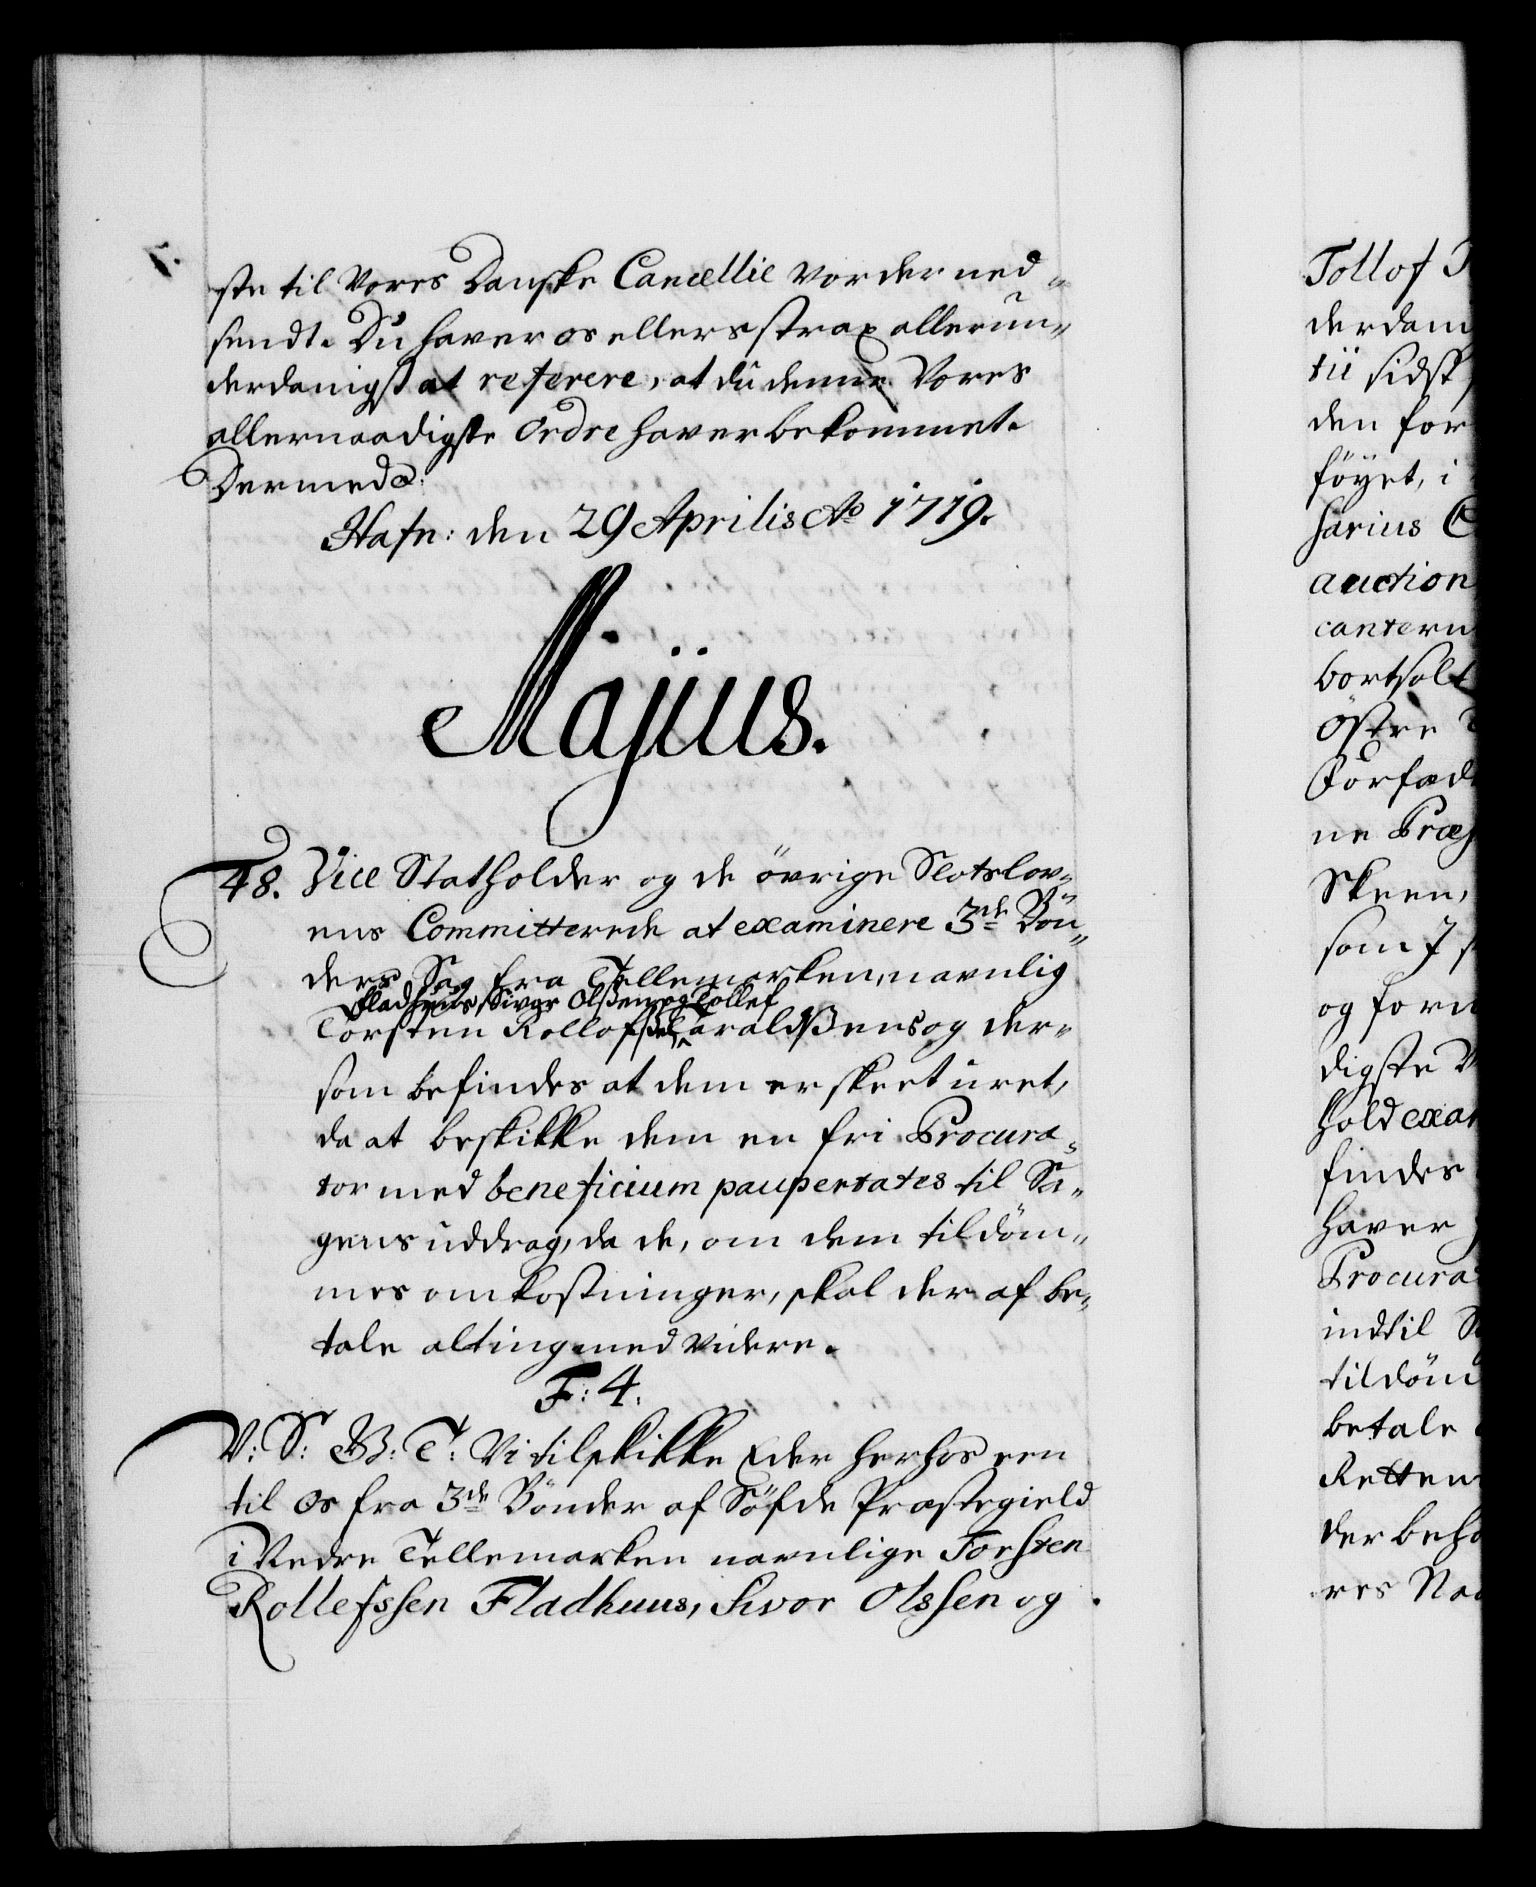 ste til Vores Danske Cancellie vorder ned-
sendt. Du haver os ellers strax allerun-
derdanigst at referere, at du denne Vores
allernaadigste Ordre haver bekommet.
Dermed &.
Hafn: den 29 Aprilis Ao 1719.
Majius.
48. Vice Statholder og de övrige Slotslov-
ens Committerede at examinere 3de Bön-
ders Sag fra Tellemarken, navnlig
Fladhuus, Sivor Olssen og Tollef
Torsten Rollofsen Haraldssens og der-
som befindes at dem er skeet uret,
da at beskikke dem en fri Procura-
tor med beneficium paupertates til Sa-
gens uddrag, da de, om dem tildöm-
mes omkostninger, skal der af be-
tale alting med videre.
F: 4.
V: S: W: T: Vi tilskikke Eder herhos een
til Os fra 3de Bönder af Söfde Præstegield
i Nedre Tellemarken navnlige Torsten
Rollefssen Fladhuus, Sivor Olssen og
Tollof
derdan
tii sidst
den for
föyet, i
harius
auction
cantern
bortsolt
östre
Forfad
ne Præs
Skeen,
som J
og forn
digste
hold exam
findes
haver
Procura
indtil
tildöm
betale
Retten
der beho
res Naa